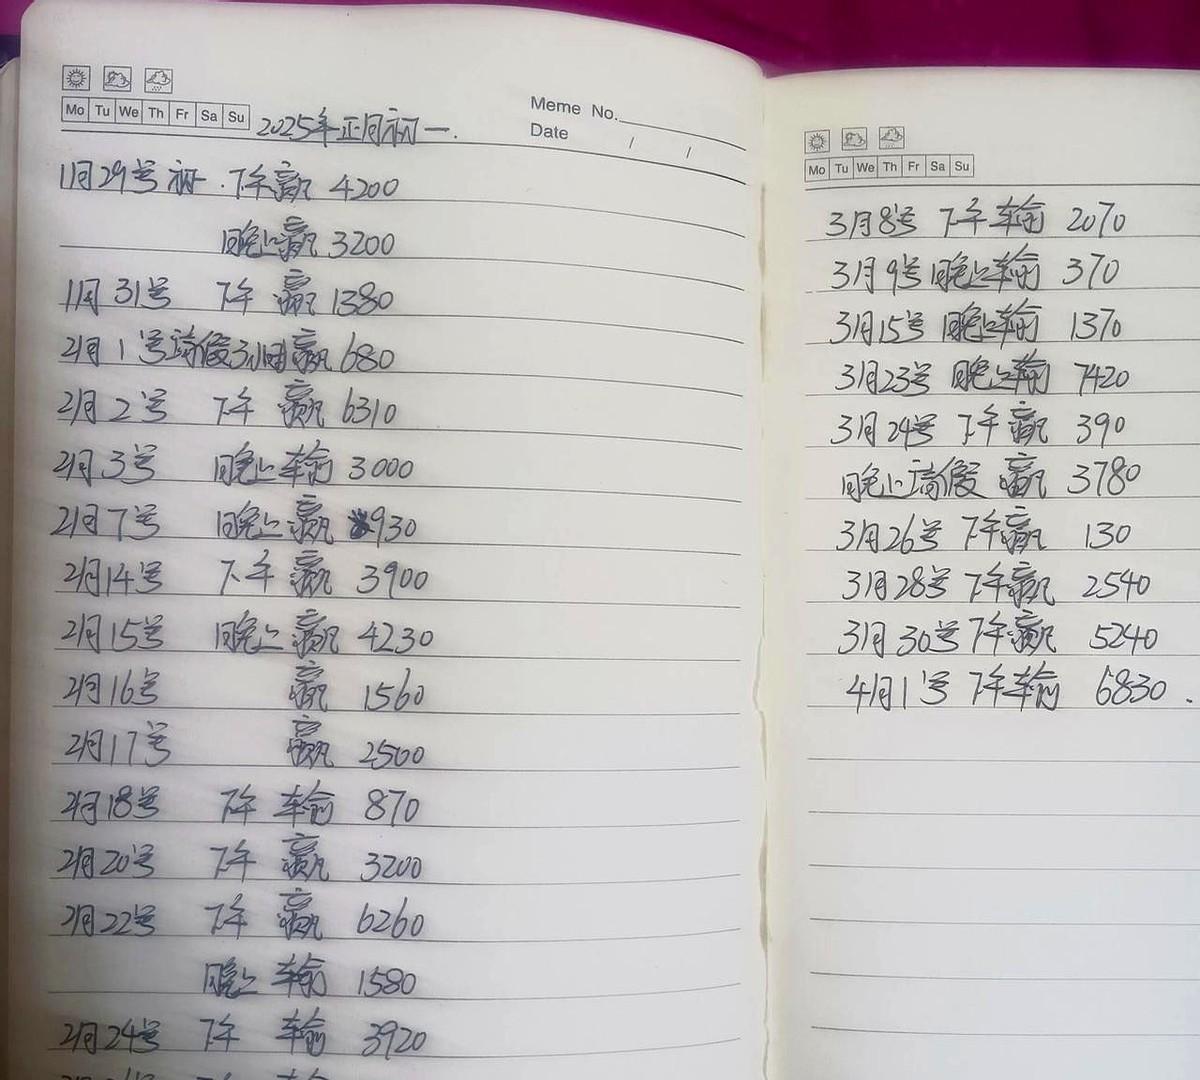 Mo Tu We Th Fr Sa Su
Meme No.
Date / /
2025年正月初一.
1月29号 初一. 下午赢 4200
晚上赢 3200
1月31号 下午 赢 1380
2月1号瑞俊3小时赢 680
2月2号 下午 赢 6310
2月3号 晚上输 3000
2月7号 晚上赢 930
2月14号 下午 赢 3900
2月15号 晚上赢 4230
2月16号 赢 1560
2月17号 赢 2500
2月18号 下午 输 870
2月20号 下午 赢 3200
2月22号 下午 赢 6260
晚上 输 1580
2月24号 下午 输 3920
Mo Tu We Th Fr Sa Su
3月8号 下午 输 2070
3月9号 晚上输 370
3月15号 晚上输 1370
3月23号 晚上输 7420
3月24号 下午赢 390
晚上瑞俊 赢 3780
3月26号 下午赢 130
3月28号 下午赢 2540
3月30号 下午赢 5240
4月1号 下午输 6830.